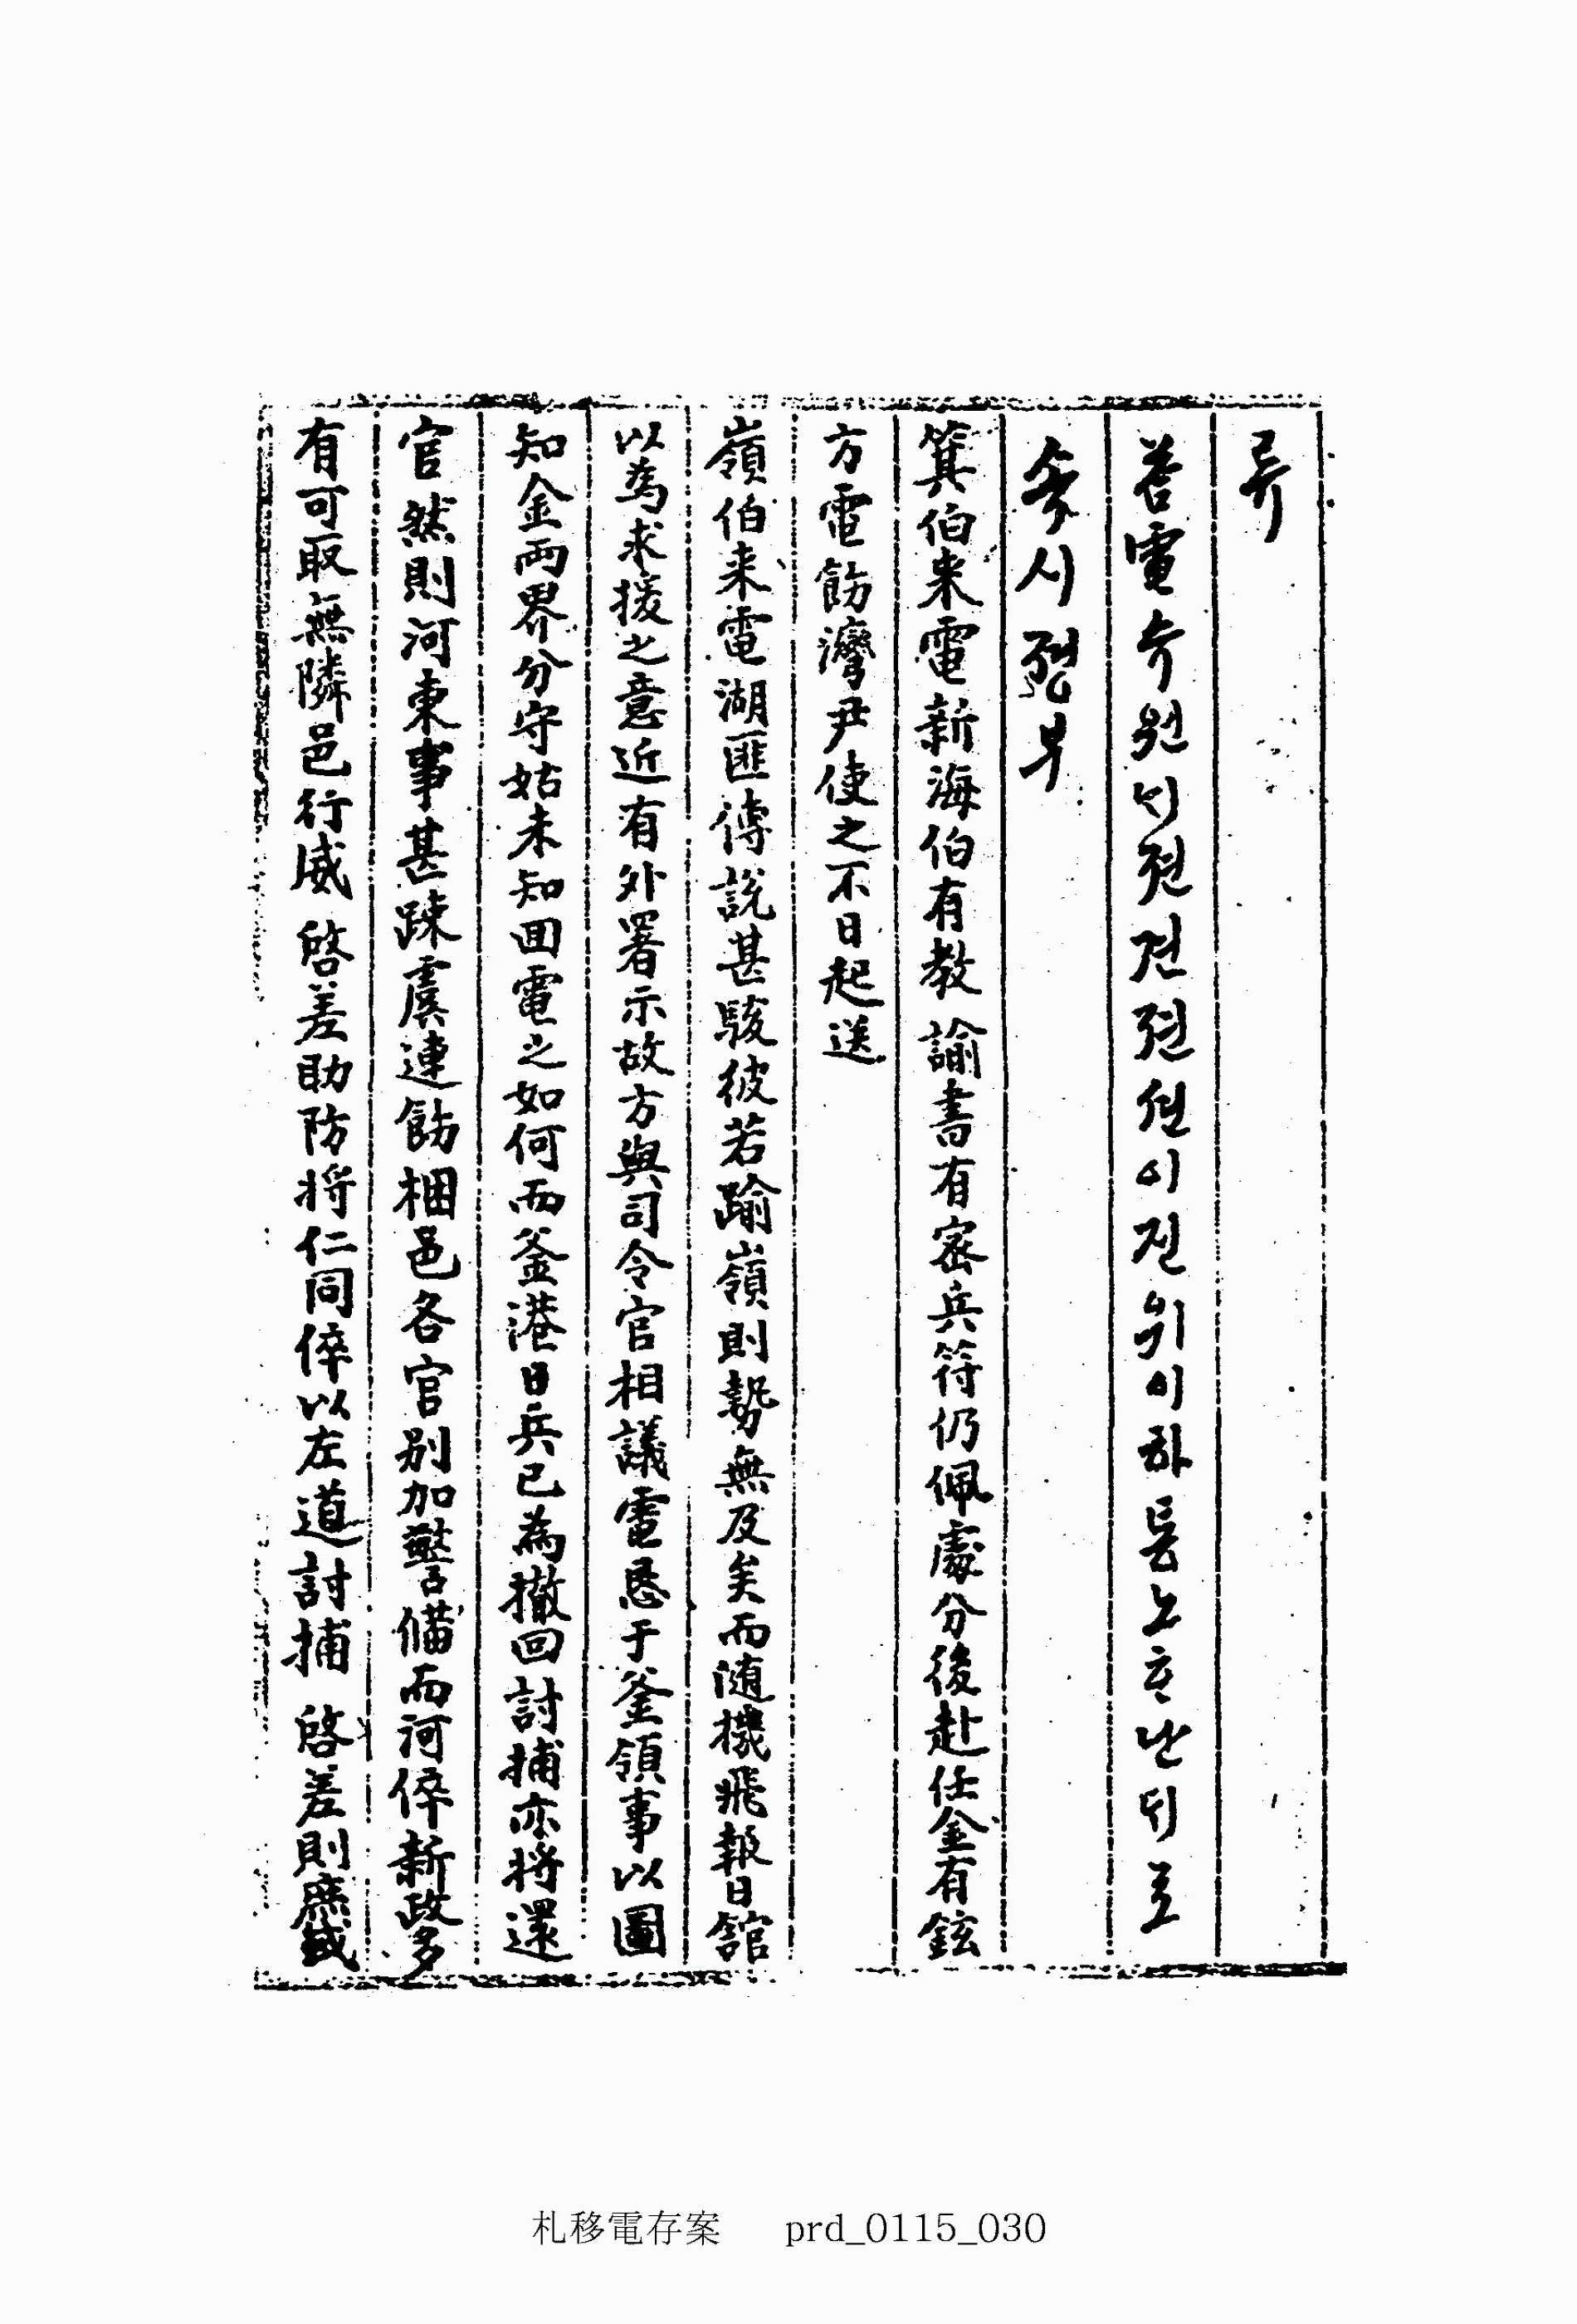 류
答電 수원시젼젼젼션이진위이하등노흐난듸로
속시젼부
箕伯来電新海伯有教 諭書有密兵符仍佩處分後赴任金有鉉
方電飭灣尹使之不日起送
嶺伯来電湖匪傳說甚駭彼若踰嶺則勢無及矣而随機飛報日舘
以爲求援之意近有外署示故方與司令官相議電恳于釜領事以圖
知金両界分守姑未知回電之如何而釜港日兵已為撤回討捕亦将還
官然則河東事甚踈虞連飭梱邑各官别加警備而河倅新政多
有可取無隣邑行威 啓差助防将仁同倅以左道討捕 啓差則應或
札移電存案 prd_0115_030